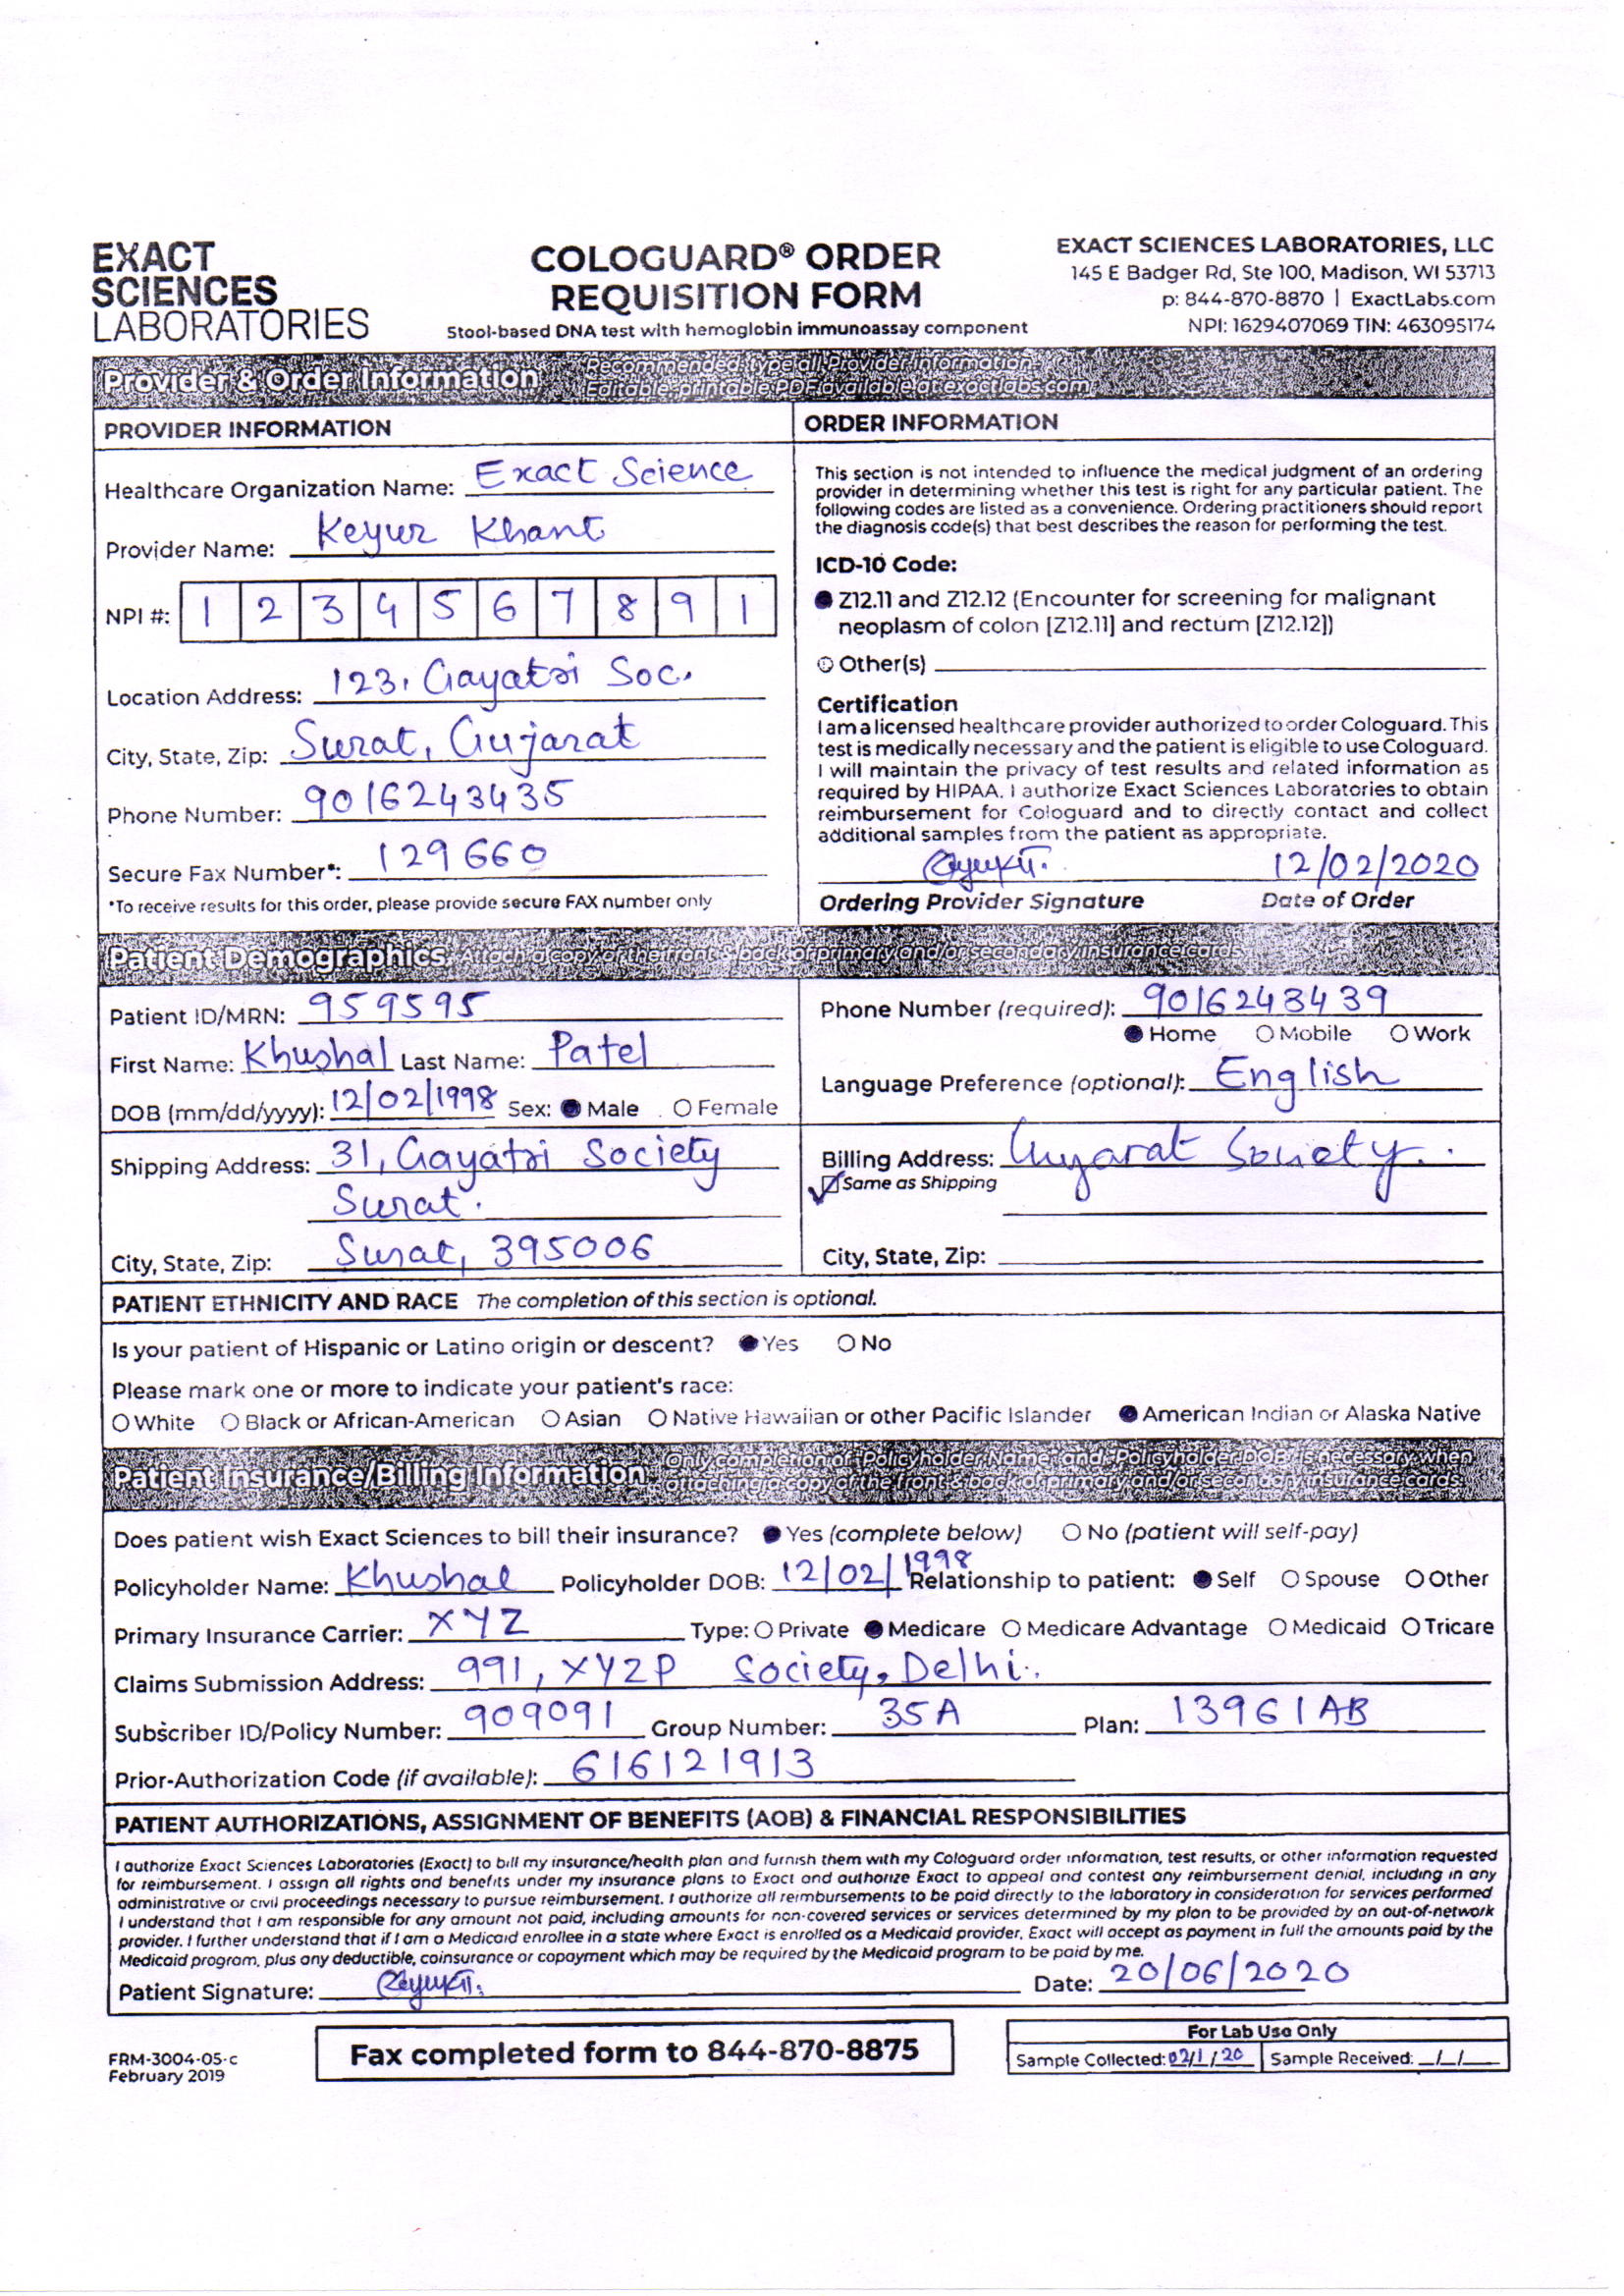 EXACT
SCIENCES
LABORATORIES
COLOGUARD® ORDER
REQUISITION FORM
Stool-based DNA test with hemoglobin immunoassay component
EXACT SCIENCES LABORATORIES, LLC
145 E Badger Rd, Ste 100, Madison, WI 53713
p: 844-870-8870 | ExactLabs.com
NPI: 1629407069 TIN: 463095174
Provider & Order Information
Recommended: type all Provider Information.
Editable-printable PDF available at exactlabs.com
PROVIDER INFORMATION
Healthcare Organization Name: Exact Science
Provider Name: Keyur Khant
NPI #: 1 2 3 4 5 6 7 8 9 1
Location Address: 123, Gayatri Soc.
City, State, Zip: Surat, Gujarat
Phone Number: 9016243435
Secure Fax Number*: 129660
*To receive results for this order, please provide secure FAX number only
ORDER INFORMATION
This section is not intended to influence the medical judgment of an ordering
provider in determining whether this test is right for any particular patient. The
following codes are listed as a convenience. Ordering practitioners should report
the diagnosis code(s) that best describes the reason for performing the test.
ICD-10 Code:
Z12.11 and Z12.12 (Encounter for screening for malignant
neoplasm of colon [Z12.11] and rectum [Z12.12])
Other(s)
Certification
I am a licensed healthcare provider authorized to order Cologuard. This
test is medically necessary and the patient is eligible to use Cologuard.
I will maintain the privacy of test results and related information as
required by HIPAA. I authorize Exact Sciences Laboratories to obtain
reimbursement for Cologuard and to directly contact and collect
additional samples from the patient as appropriate.
12/02/2020
Ordering Provider Signature Date of Order
Patient Demographics Attach a copy of the front & back of primary and/or secondary insurance cards.
Patient ID/MRN: 959595
First Name: Khushal Last Name: Patel
DOB (mm/dd/yyyy): 12/02/1998 Sex: Male Female
Phone Number (required): 9016243439
Home Mobile Work
Language Preference (optional): English
Shipping Address: 31, Gayatri Society
Surat.
City, State, Zip: Surat, 395006
Billing Address: Gujarat Society.
Same as Shipping
City, State, Zip:
PATIENT ETHNICITY AND RACE The completion of this section is optional.
Is your patient of Hispanic or Latino origin or descent? Yes No
Please mark one or more to indicate your patient's race:
White Black or African-American Asian Native Hawaiian or other Pacific Islander American Indian or Alaska Native
Patient Insurance/Billing Information
Only completion of Policyholder Name and Policyholder DOB is necessary when
attaching a copy of the front & back of primary and/or secondary insurance cards.
Does patient wish Exact Sciences to bill their insurance? Yes (complete below) No (patient will self-pay)
Policyholder Name: Khushal Policyholder DOB: 12/02/1998 Relationship to patient: Self Spouse Other
Primary Insurance Carrier: XYZ Type: Private Medicare Medicare Advantage Medicaid Tricare
Claims Submission Address: 991, XYZP Society, Delhi.
Subscriber ID/Policy Number: 909091 Group Number: 35A Plan: 13961AB
Prior-Authorization Code (if available): 616121913
PATIENT AUTHORIZATIONS, ASSIGNMENT OF BENEFITS (AOB) & FINANCIAL RESPONSIBILITIES
I authorize Exact Sciences Laboratories (Exact) to bill my insurance/health plan and furnish them with my Cologuard order information, test results, or other information requested
for reimbursement. I assign all rights and benefits under my insurance plans to Exact and authorize Exact to appeal and contest any reimbursement denial, including in any
administrative or civil proceedings necessary to pursue reimbursement. I authorize all reimbursements to be paid directly to the laboratory in consideration for services performed
I understand that I am responsible for any amount not paid, including amounts for non-covered services or services determined by my plan to be provided by an out-of-network
provider. I further understand that if I am a Medicaid enrollee in a state where Exact is enrolled as a Medicaid provider, Exact will accept as payment in full the amounts paid by the
Medicaid program, plus any deductible, coinsurance or copayment which may be required by the Medicaid program to be paid by me.
Patient Signature: Date: 20/06/2020
FRM-3004-05-c
February 2019
Fax completed form to 844-870-8875
For Lab Use Only
Sample Collected: 02/1/20 Sample Received: _/_/_